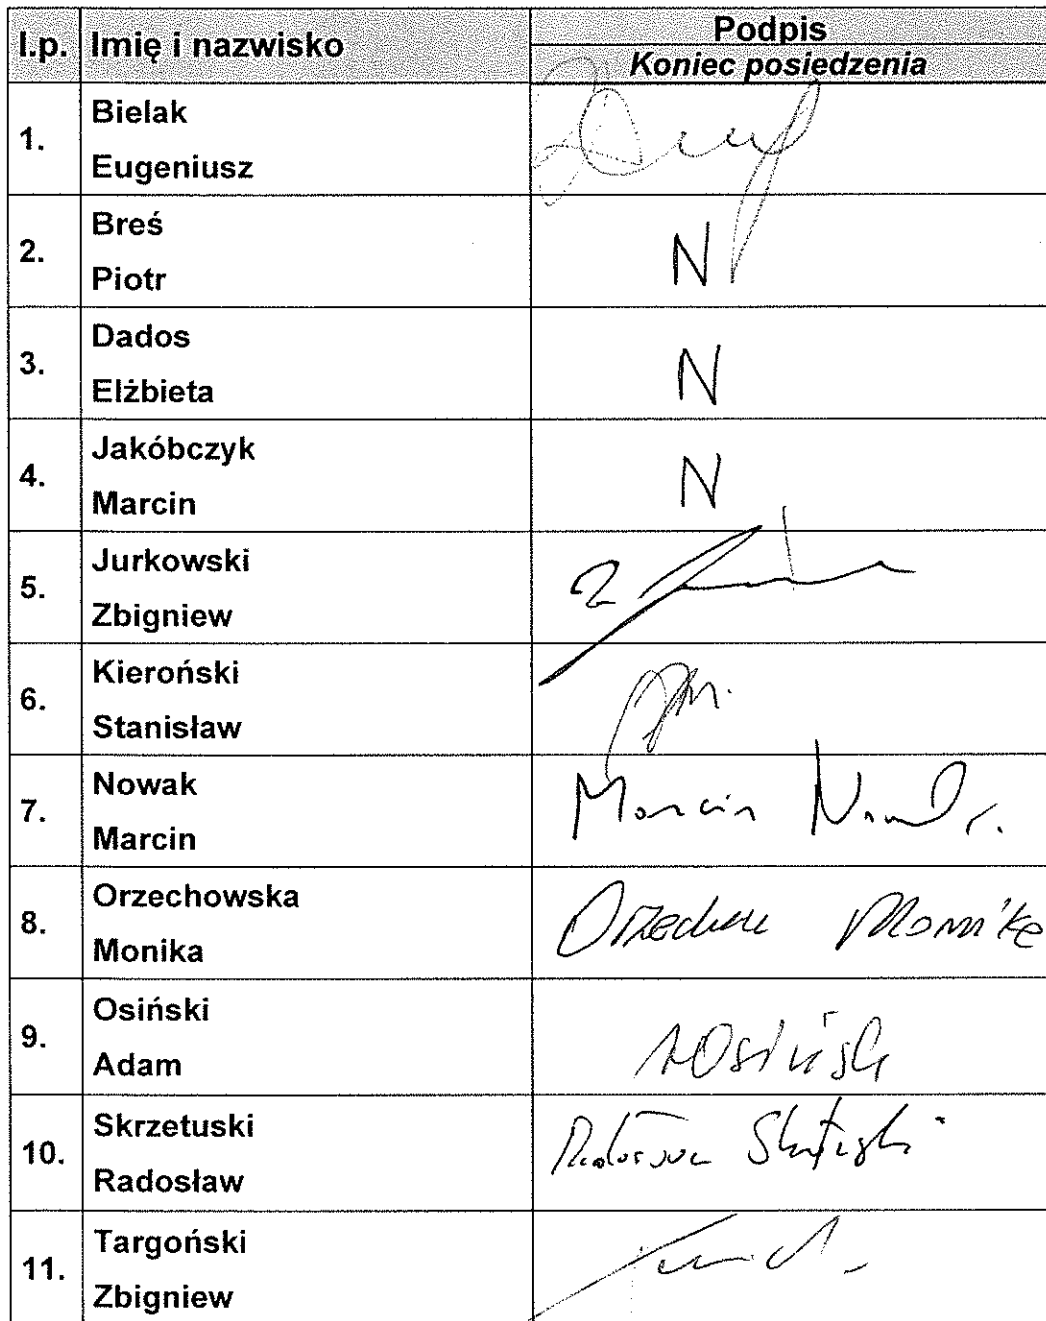 l.p. Imię i nazwisko Podpis
Koniec posiedzenia
1. Bielak
Eugeniusz
2. Breś
Piotr
N
3. Dados
Elżbieta
N
4. Jakóbczyk
Marcin
N
5. Jurkowski
Zbigniew
6. Kieroński
Stanisław
7. Nowak
Marcin
Marcin
8. Orzechowska
Monika
Monika
9. Osiński
Adam
AOsiński
10. Skrzetuski
Radosław
11. Targoński
Zbigniew